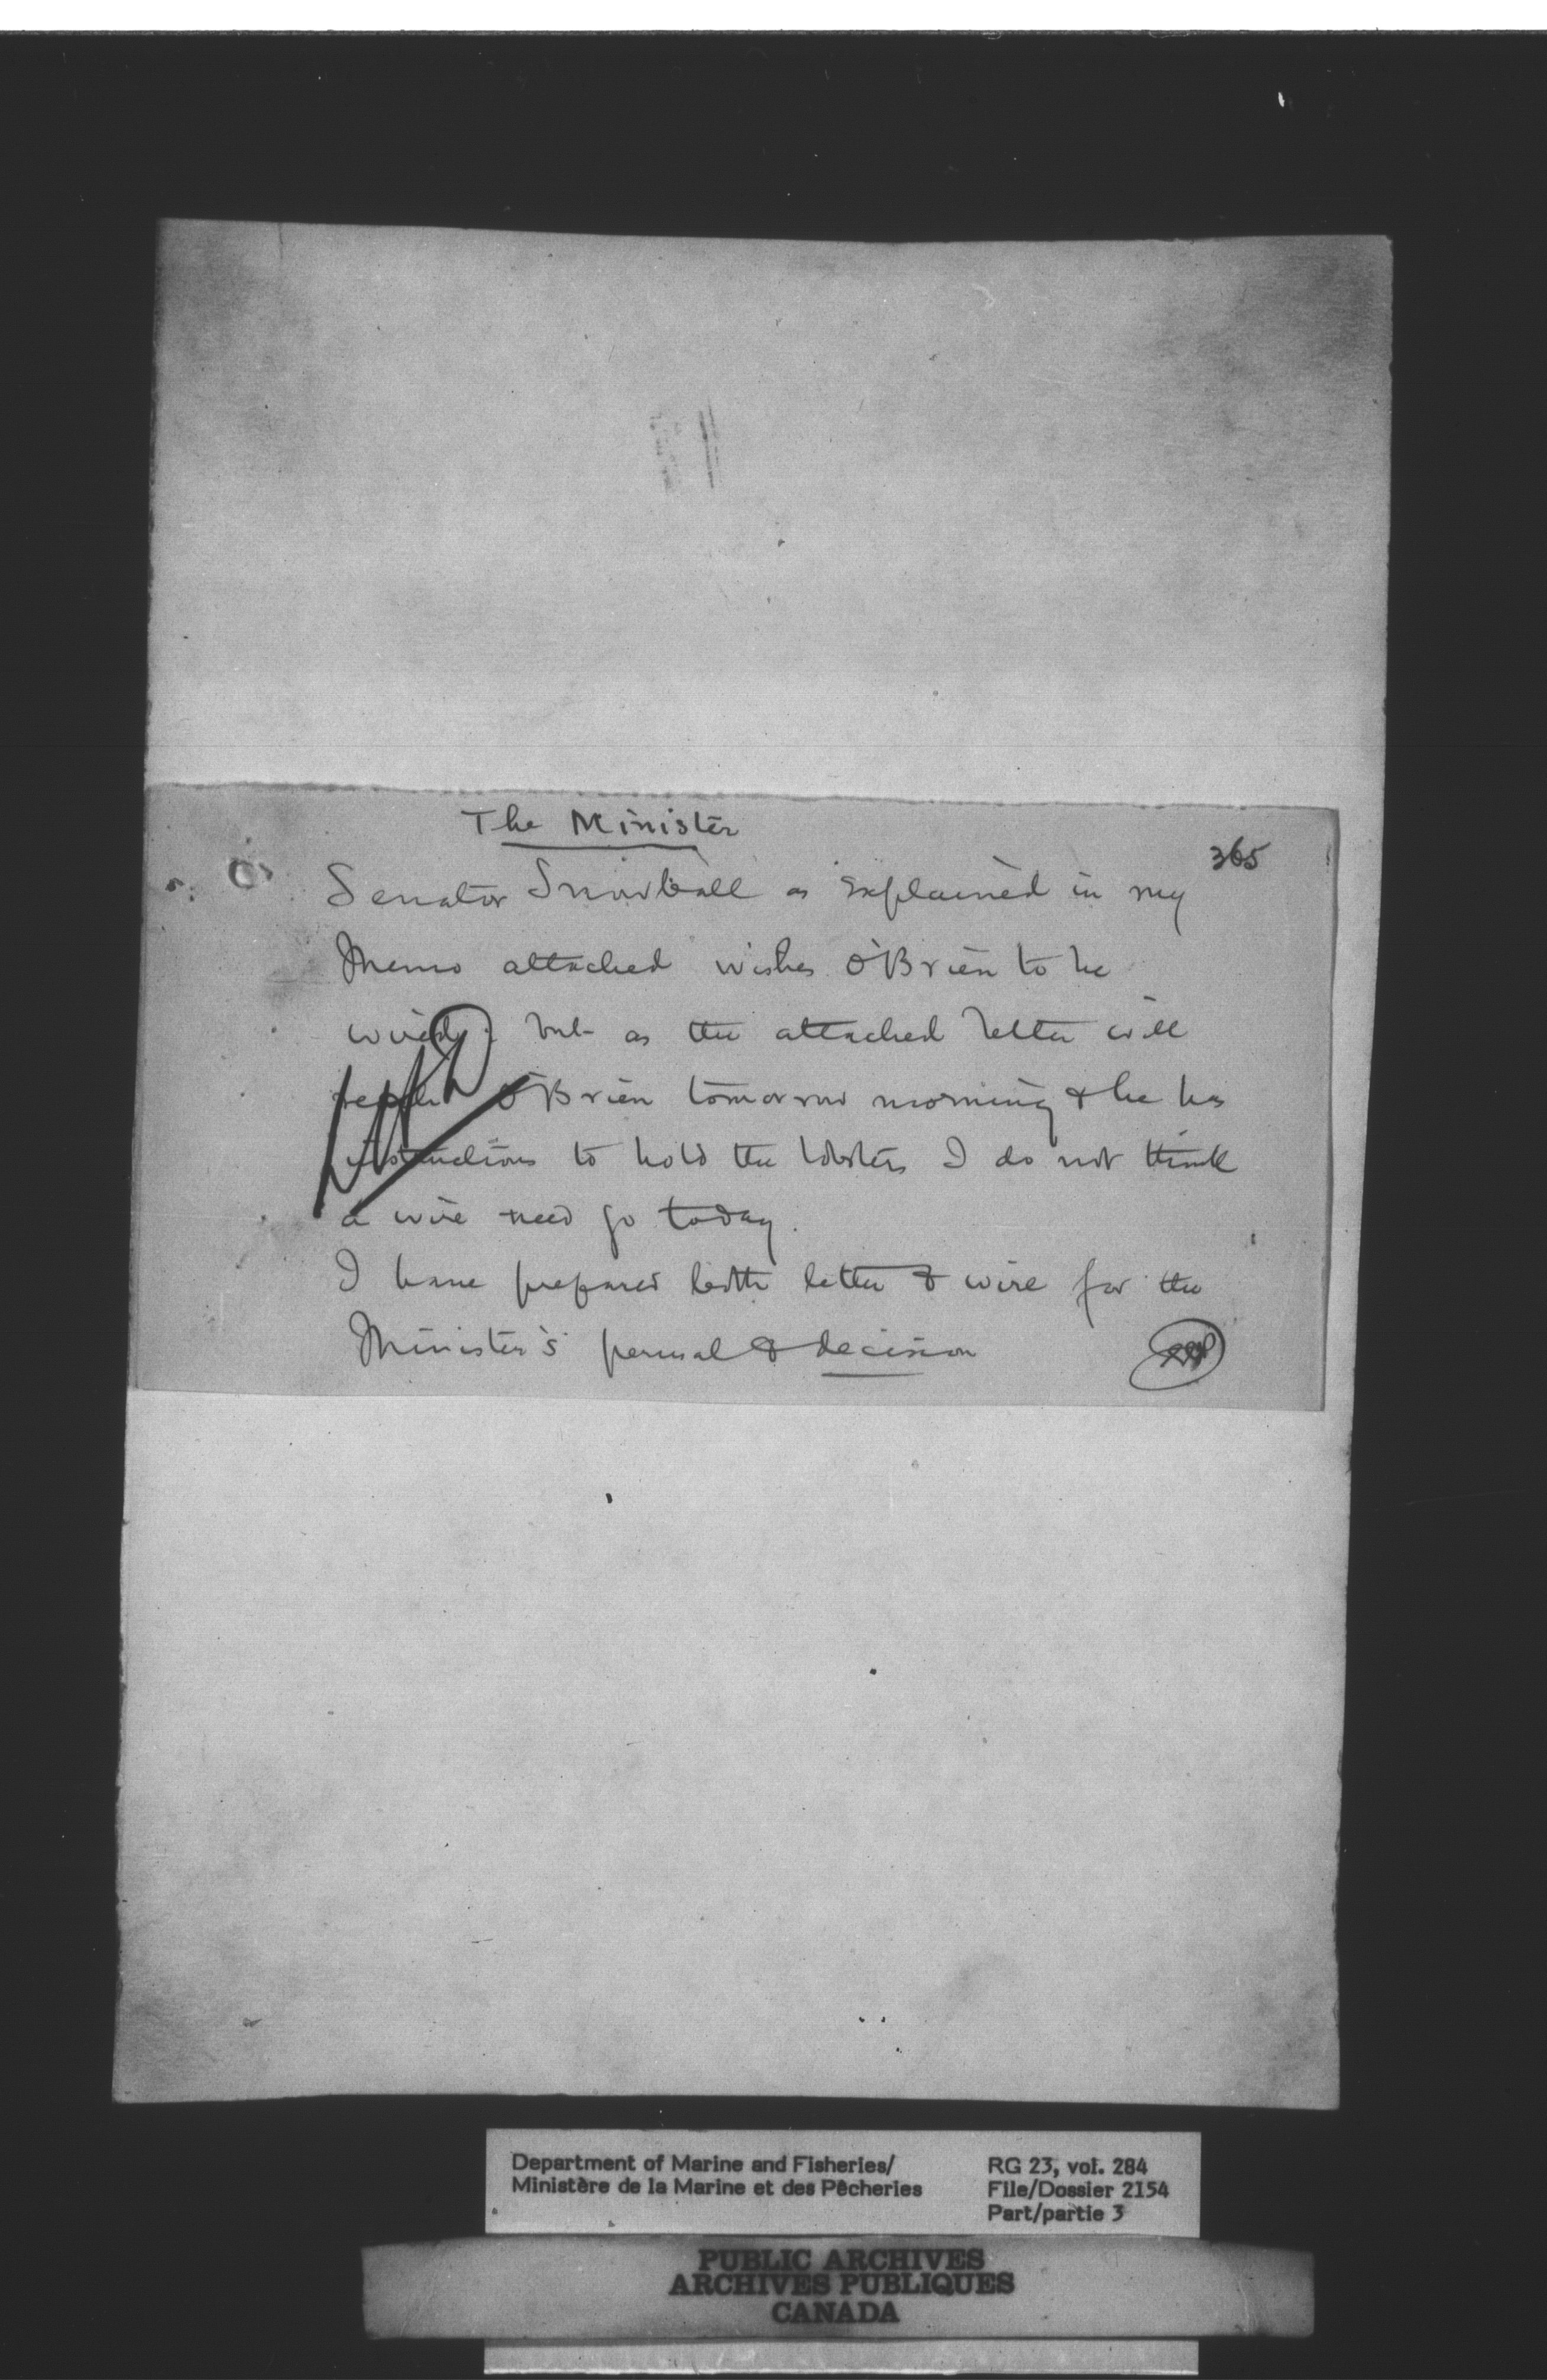 The Minister
365
Senator Snowball as explained in my
Memo attached wishes O'Brien to be
wired; but as the attached letter will
reach O'Brien tomorrow morning & he has
instructions to hold the lobsters I do not think
a wire need go today.
I have prepared both letter & wire for the
Minister's perusal & decision
Department of Marine and Fisheries/
Ministère de la Marine et des Pêcheries
RG 23, vol. 284
File/Dossier 2154
Part/partie 3
PUBLIC ARCHIVES
ARCHIVES PUBLIQUES
CANADA